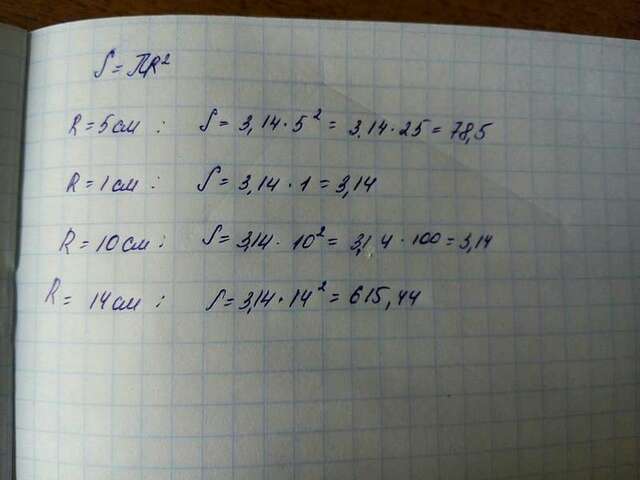 S = ПR²
R = 5 см : S = 3,14 · 5² = 3,14 · 25 = 78,5
R = 1 см : S = 3,14 · 1 = 3,14
R = 10 см : S = 3,14 · 10² = 3,14 · 100 = 3,14
R = 14 см : S = 3,14 · 14² = 615,44